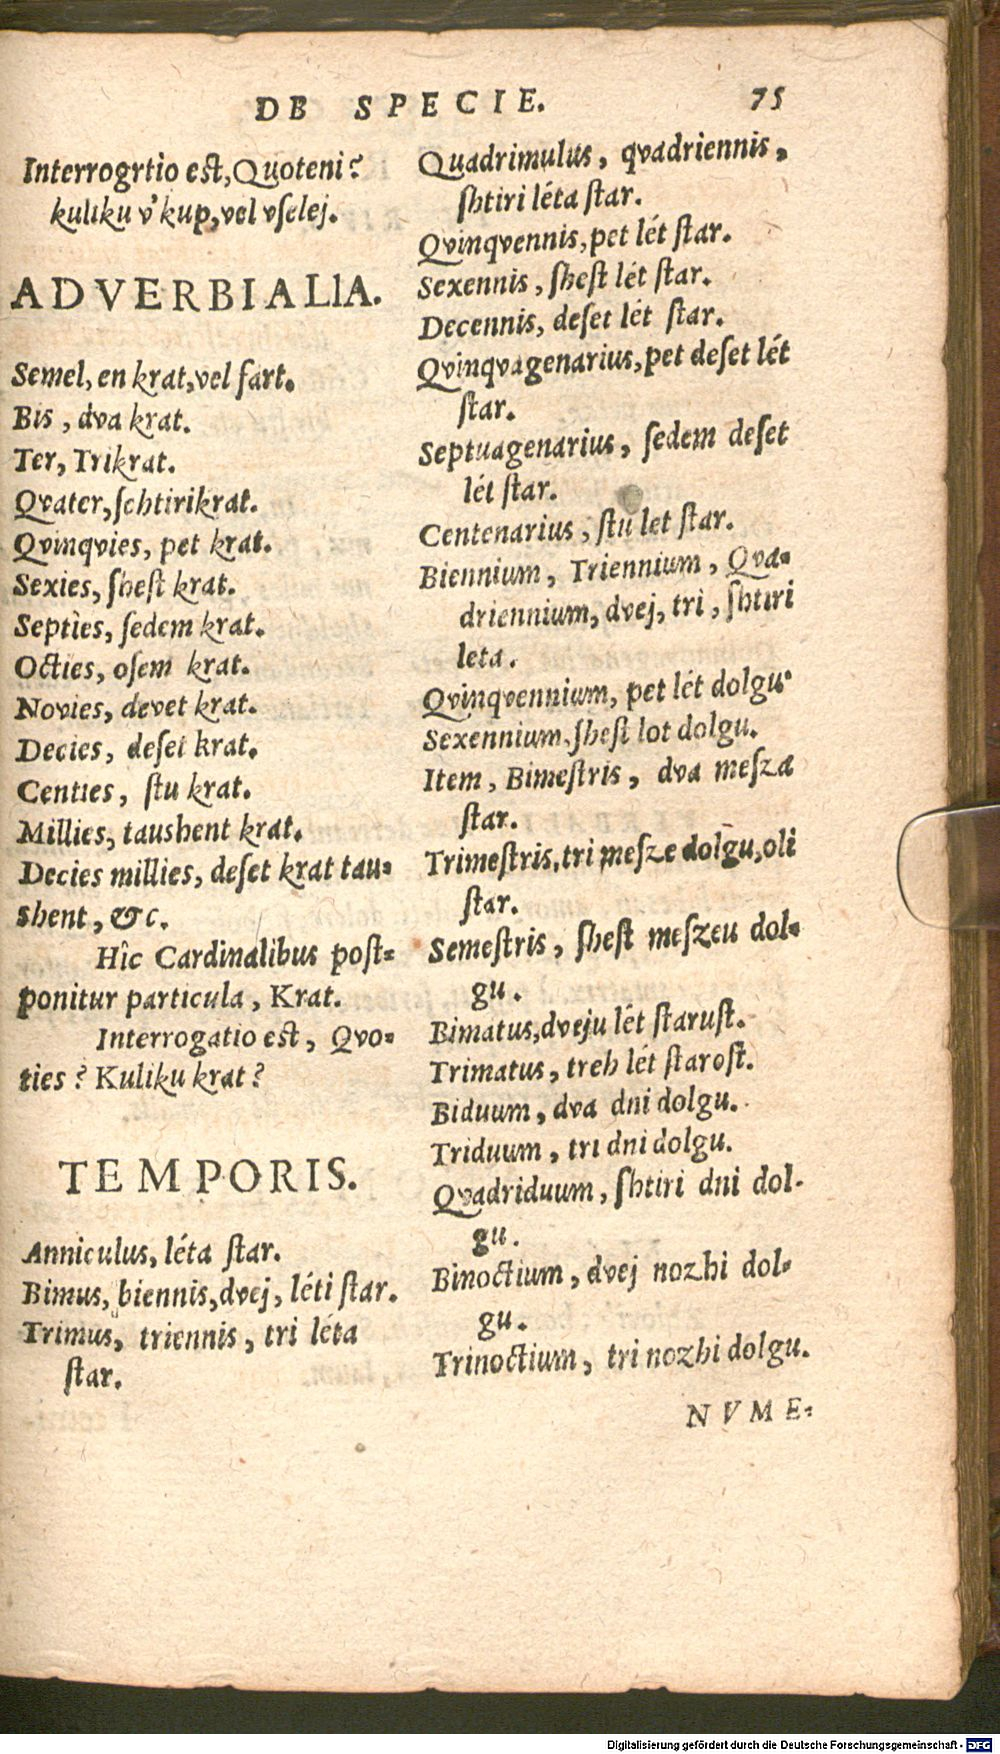 DE SPECIE. 75
Interrogrtio eſt, Quoteni?
kuliku v'kup, vel vſelej.
ADVERBIALIA.
Semel, en krat, vel fart.
Bis, dva krat.
Ter, Trikrat.
Qvater, ſchtirikrat.
Qvinqvies, pet krat.
Sexies, ſheſt krat.
Septies, ſedem krat.
Octies, oſem krat.
Novies, devet krat.
Decies, deſet krat.
Centies, ſtu krat.
Millies, taushent krat.
Decies millies, deſet krat tau-
shent, &c.
Hîc Cardinalibus poſt-
ponitur particula, Krat.
Interrogatio eſt, Qvo-
ties? Kuliku krat?
TEMPORIS.
Anniculus, léta ſtar.
Bimus, biennis, dvej, léti ſtar.
Trimus, triennis, tri léta
ſtar.
Quadrimulus, qvadriennis,
ſhtiri léta ſtar.
Qvinqvennis, pet lét ſtar.
Sexennis, ſheſt lét ſtar.
Decennis, deſet lét ſtar.
Qvinqvagenarius, pet deſet lét
ſtar.
Septuagenarius, ſedem deſet
lét ſtar.
Centenarius, ſtu let ſtar.
Biennium, Triennium, Qva-
driennium, dvej, tri, ſhtiri
leta.
Qvinqvennium, pet lét dolgu.
Sexennium, ſheſt lot dolgu.
Item, Bimeſtris, dva meſza
ſtar.
Trimeſtris, tri meſze dolgu, oli
ſtar.
Semeſtris, ſheſt meſzeu dol-
gu.
Bimatus, dveju lét ſtaruſt.
Trimatus, treh lét ſtaroſt.
Biduum, dva dni dolgu.
Triduum, tri dni dolgu.
Qvadriduum, ſhtiri dni dol-
gu.
Binoctium, dvej nozhi dol-
gu.
Trinoctium, tri nozhi dolgu.
NVME-
Digitalisierung gefördert durch die Deutsche Forschungsgemeinschaft - DFG